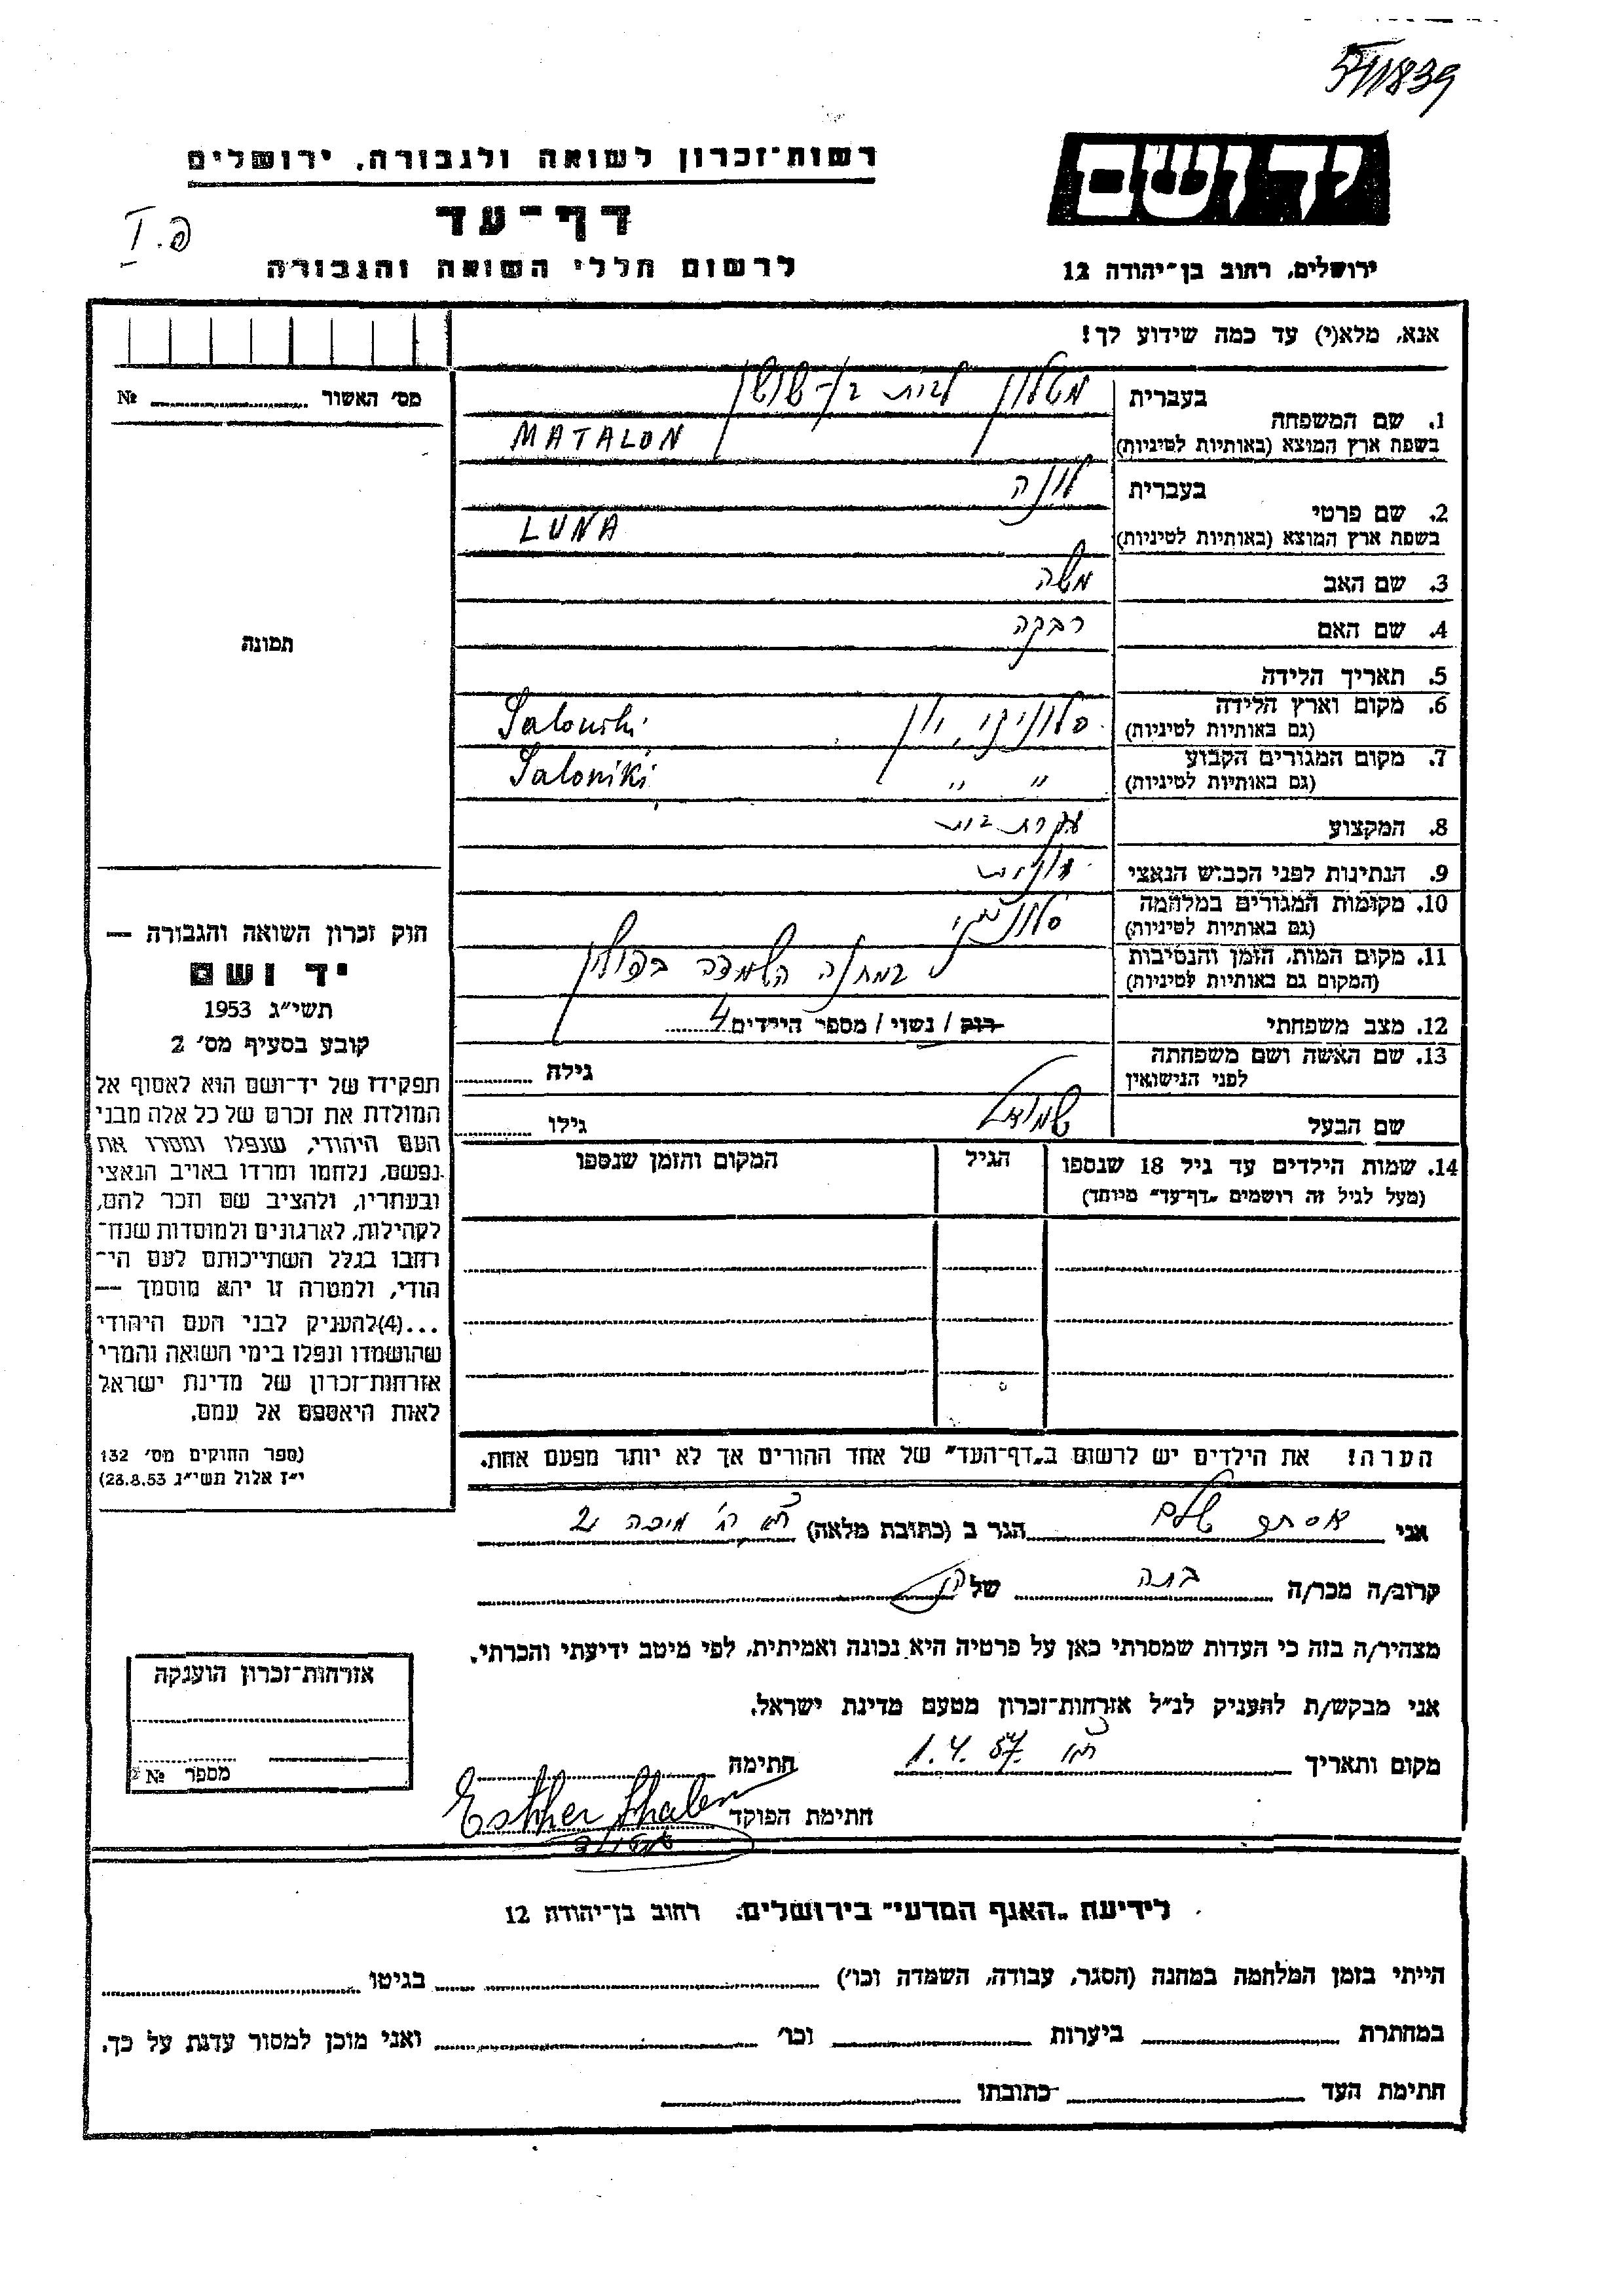 5/1839
רשות־זכרון לשואה ולגבורה, ירושלים
יד ושם
דף־עד
פ. I
לרשום חללי השואה והגבורה
ירושלים, רחוב בן־יהודה 12
אנא, מלא(י) עד כמה שידוע לך!
מס' האשור № ............
תמונה
1. שם המשפחה בעברית מטלון לבית בן-שושן
בשפת ארץ המוצא (באותיות לטיניות) MATALON
2. שם פרטי בעברית לונה
בשפת ארץ המוצא (באותיות לטיניות) LUNA
3. שם האב משה
4. שם האם רבקה
5. תאריך הלידה
6. מקום וארץ הלידה סלוניקי, יון Saloniki
(גם באותיות לטיניות)
7. מקום המגורים הקבוע " " Saloniki
(גם באותיות לטיניות)
8. המקצוע עקרת בית
9. הנתינות לפני הכבוש הנאצי יונית
10. מקומות המגורים במלחמה סלוניקי
(גם באותיות לטיניות)
11. מקום המות, הזמן והנסיבות במחנה השמדה בפולין
(המקום גם באותיות לטיניות)
12. מצב משפחתי רוק / נשוי / מספר הילדים 4
13. שם האשה ושם משפחתה גילה ............
לפני הנישואין
שם הבעל שמואל גילו ............
14. שמות הילדים עד גיל 18 שנספו הגיל המקום והזמן שנספו
(מעל לגיל זה רושמים „דף־עד" מיוחד)
חוק זכרון השואה והגבורה —
יד ושם
תשי"ג 1953
קובע בסעיף מס' 2
תפקידו של יד־ושם הוא לאסוף אל
המולדת את זכרם של כל אלה מבני
העם היהודי, שנפלו ומסרו את
נפשם, נלחמו ומרדו באויב הנאצי
ובעוזריו, ולהציב שם וזכר להם,
לקהילות, לארגונים ולמוסדות שנח־
רחבו בגלל השתייכותם לעם הי־
הודי, ולמטרה זו יהא מוסמך —
...(4) להעניק לבני העם היהודי
שהושמדו ונפלו בימי השואה והמרי
אזרחות־זכרון של מדינת ישראל
לאות היאספם אל עמם.
(ספר החוקים מס' 132
י"ז אלול תשי"ג 28.8.53)
הערה! את הילדים יש לרשום ב„דף־העד" של אחד ההורים אך לא יותר מפעם אחת.
אני אסתר שלם הגר ב (כתובת מלאה) ת"א רח' מיכה 2
קרוב/ה מכר/ה בתה של הנ"ל
מצהיר/ה בזה כי העדות שמסרתי כאן על פרטיה היא נכונה ואמיתית, לפי מיטב ידיעתי והכרתי.
אני מבקש/ת להעניק לנ"ל אזרחות־זכרון מטעם מדינת ישראל.
מקום ותאריך ת"א 1.4.57 חתימה Esther Shalem
חתימת הפוקד
אזרחות־זכרון הוענקה
מספר №
לידיעת „האגף המדעי" בירושלים, רחוב בן־יהודה 12
הייתי בזמן המלחמה במחנה (הסגר, עבודה, השמדה וכו') ............ בגיטו ............
במחתרת ............ ביערות ............ וכו' ............ ואני מוכן למסור עדות על כך.
חתימת העד ............ כתובתו ............